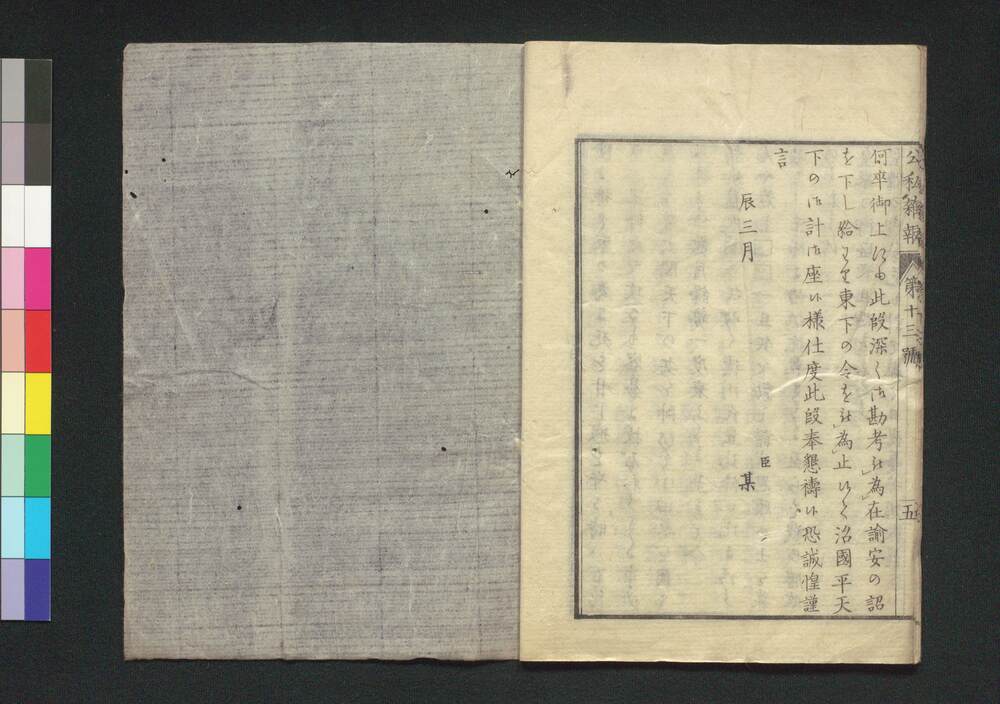 公私雑報 第十三號 五
何卒御上ゟも此段深く御勘考被為在諭安の詔
を下し給ハり東下の令を被為止ひて治國平天
下の御計御座候様仕度此段奉懇禱候恐誠惶謹
言
辰三月
臣 某